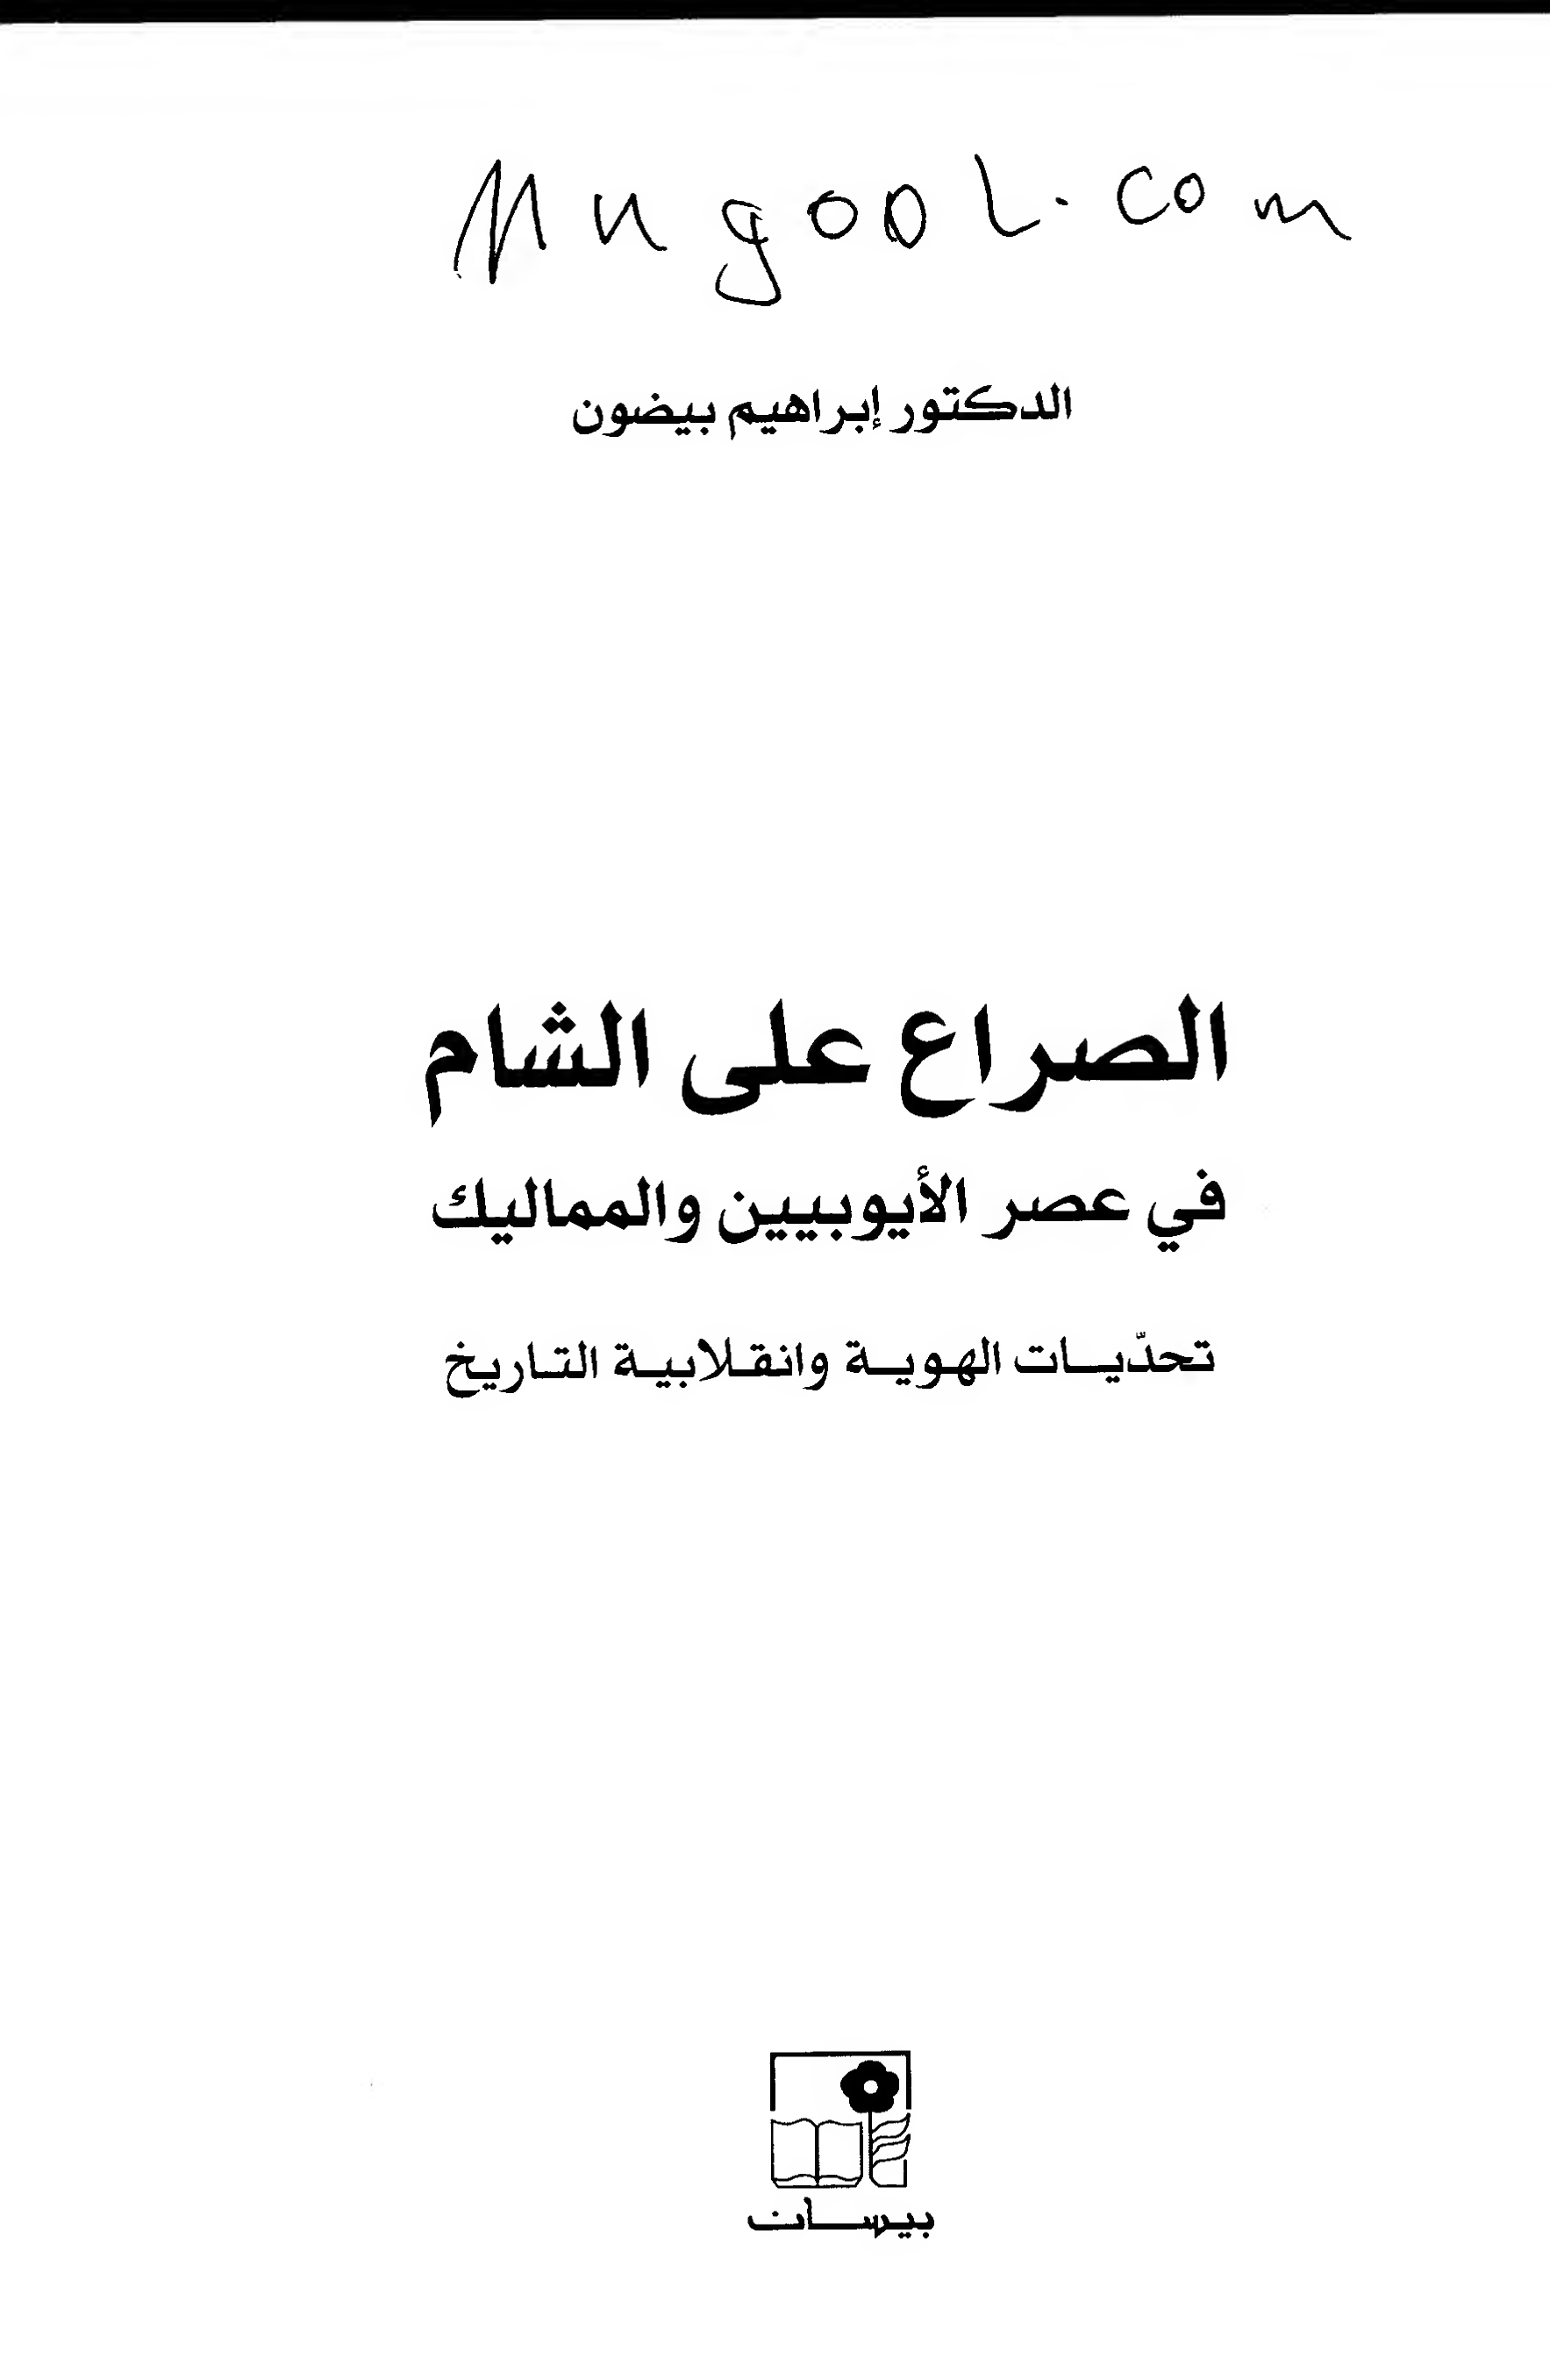 Mugool.com
الدكتور إبراهيم بيضون
الصراع على الشام
في عصر الأيوبيين والمماليك
تحدّيات الهوية وانقلابية التاريخ
بيسان